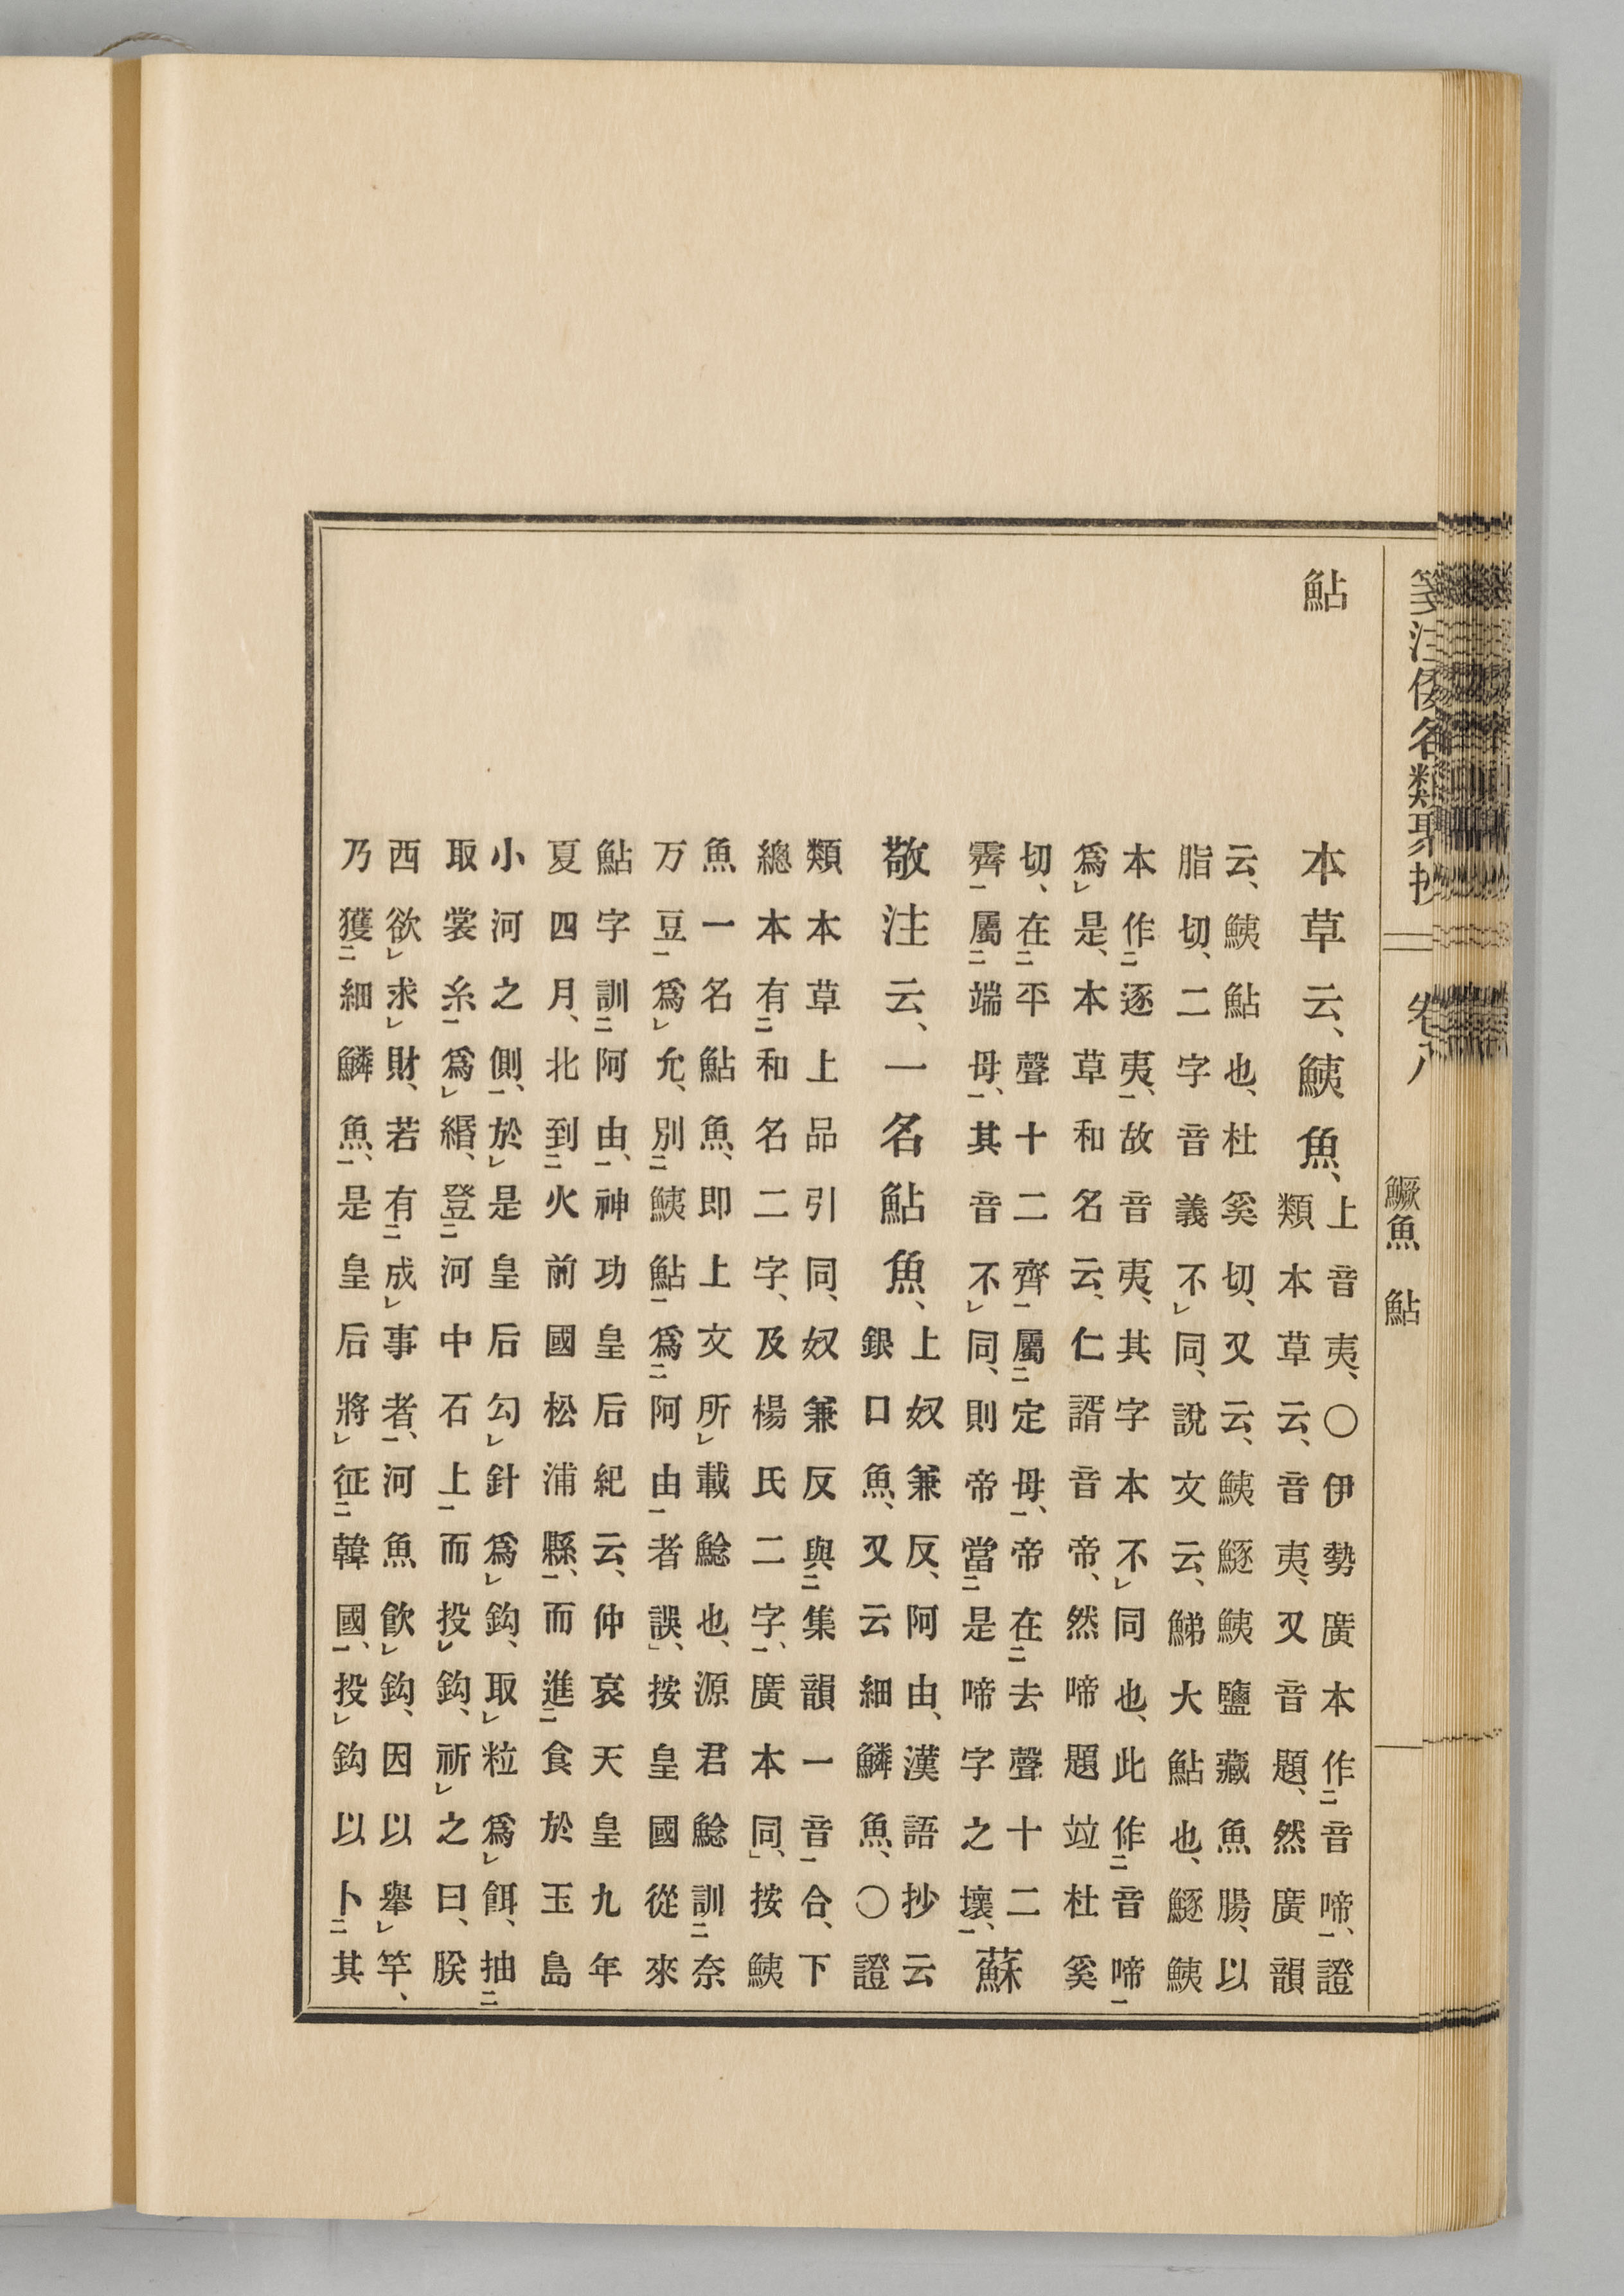 箋注倭名類聚抄 卷八 鱖魚 鮎
鮎
本草云、鮧魚、
上音夷、〇伊勢廣本作音啼、證
類本草云、音夷、又音題、然廣韻
云、鮧鮎也、杜奚切、又云、鮧鱁鮧鹽藏魚腸、以
脂切、二字音義不同、說文云、鮷大鮎也、鱁鮧
本作逐夷、故音夷、其字本不同也、此作音啼
爲是、本草和名云、仁諝音帝、然啼題竝杜奚
切、在平聲十二齊屬定母、帝在去聲十二
霽屬端母、其音不同、則帝當是啼字之壞、蘇
敬注云、一名鮎魚、
上奴兼反、阿由、漢語抄云
銀口魚、又云細鱗魚、〇證
類本草上品引同、奴兼反與集韻一音合、下
總本有和名二字、及楊氏二字、廣本同、按鮧
魚一名鮎魚、即上文所載鯰也、源君鯰訓奈
万豆爲允、別鮧鮎爲阿由者誤、按皇國從來
鮎字訓阿由、神功皇后紀云、仲哀天皇九年
夏四月、北到火前國松浦縣、而進食於玉島
小河之側、於是皇后勾針爲鈎、取粒爲餌、抽
取裳糸爲緡、登河中石上而投鈎、祈之曰、朕
西欲求財、若有成事者、河魚飮鈎、因以舉竿、
乃獲細鱗魚、是皇后將征韓國、投鈎以卜其